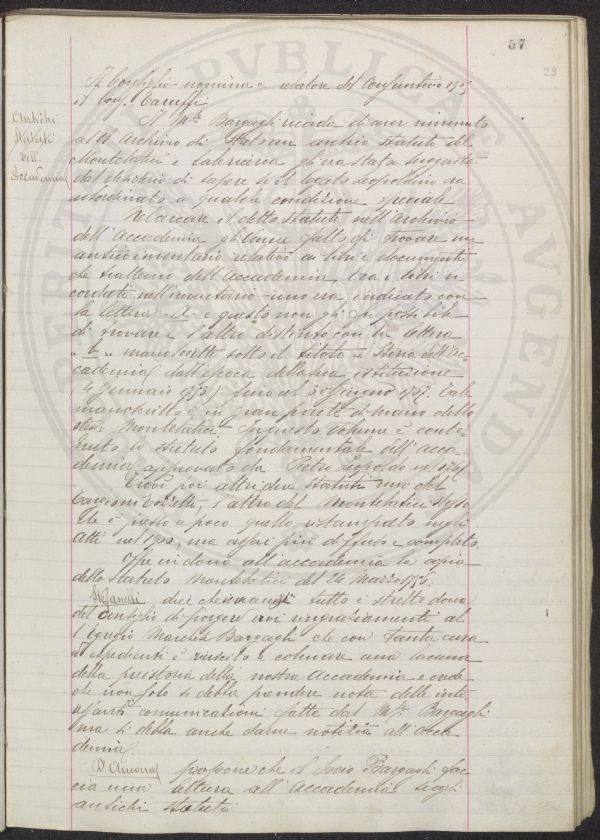 57
29
Il Consiglio nomina a relatore del Consuntivo 1905
il Cons. Caruffi
Antichi
Statuti
dell'
Accademia
Il Mse Bargagli ricorda di aver rinvenuto
all'Archivio di Stato un antico Statuto del
Montelatici e la ricerca gli era stata suggerita
dal desiderio di sapere se il legato leopoldino era
subordinato a qualche condizione speciale
Nel cercare il detto Statuto nell'Archivio
dell'Accademia gli venne fatto di trovare un
antico inventario relativo ai libri e documenti
che trattano dell'Accademia, tra i libri ri
cordati nell'inventario uno era indicato con
la lettera e questo non gli fu possibile
di trovare e l'altro distinto con la lettera
"b" manoscritto sotto il titolo di Storia dell'Ac-
cademia dall'epoca della sua istituzione
(4 Gennaio 1753) fino al Giugno 1767. Tale
manoscritto è in gran parte di mano dello
stesso Montelatici. In questo volume è conte-
nuto lo statuto fondamentale dell'Acca-
demia approvato da Pietro Leopoldo nel
Trovò poi altri due Statuti uno del
Targioni Tozzetti, l'altro del Montelatici stesso
che è presso a poco quello ristampato negli
Atti nel ma assai più diffuso e completo.
Offre in dono all'accademia la copia
dello Statuto Montelatici del 24 Marzo
Stefanelli dice che innanzi tutto è stretto dovere
del Consiglio di porgere vivi ringraziamenti al
l'Egregio Marchese Bargagli che con tanta cura
ed espedienti è riuscito a colmare una lacuna
della preistoria della nostra Accademia e crede
che non solo si debba prendere nota delle inte-
ressanti comunicazioni fatte dal Mse Bargagli
ma si debba anche darne notizia all'Acca-
demia.
D'Ancona propone che il Socio Bargagli fac-
cia una lettura all'Accademia sugli
antichi statuti
PERITI PUBLICAE AUGENDA